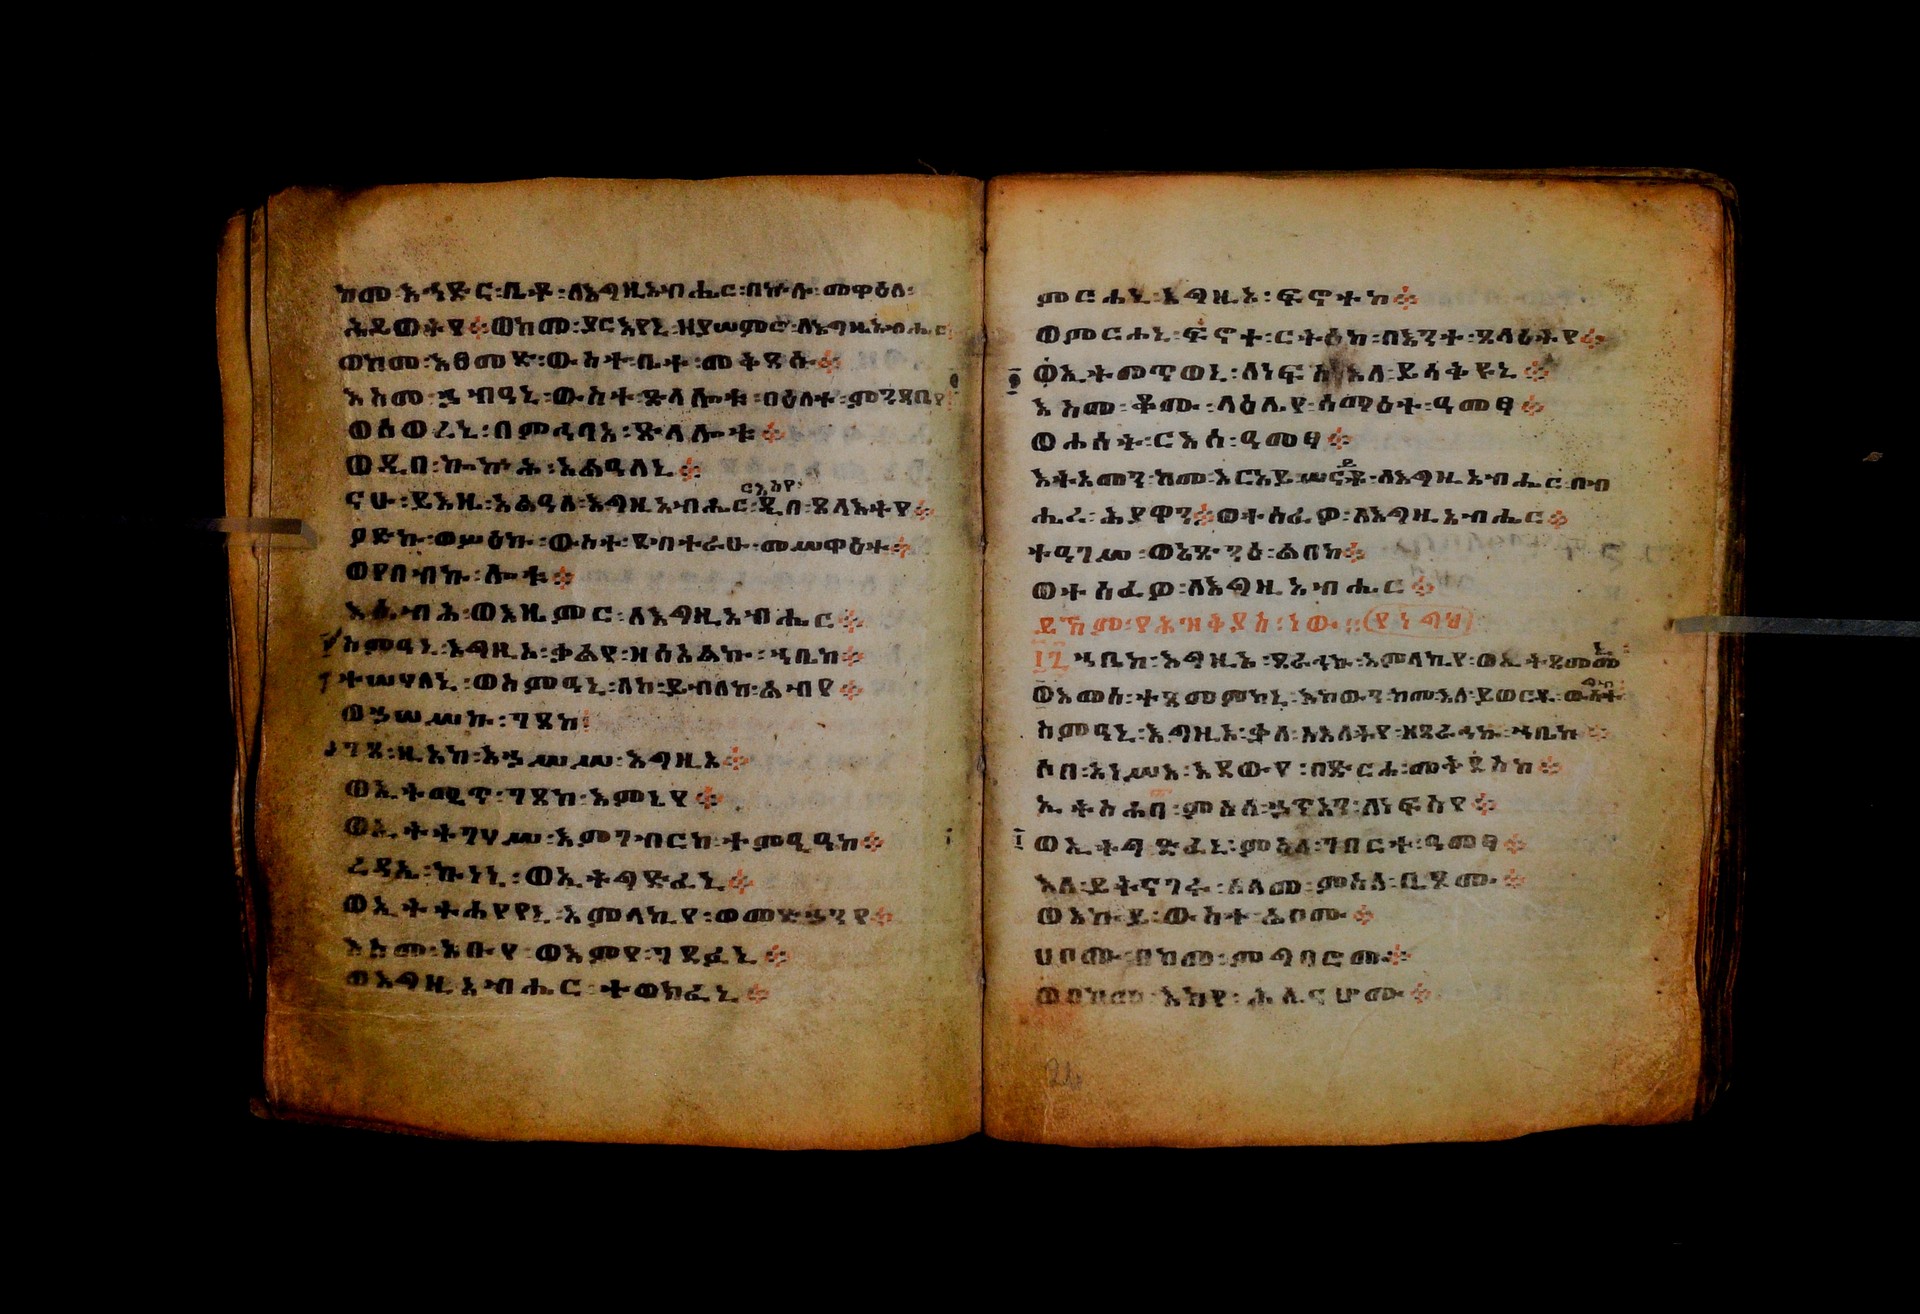 ከመ፡እኅድር፡ቤቶ፡ለእግዚአብሔር፡በኵሉ፡መዋዕለ፡
ሕይወትየ፨ወከመ፡ያርእየኒ፡ዘያሠምሮ፡ለእግዚአብሔር፨
ወከመ፡እፀመድ፡ውስተ፡ቤተ፡መቅደሱ፨
እስመ፡ኀብዓኒ፡ውስተ፡ጽላሎቱ፡በዕለተ፡ምንዳቤየ፨
ወሰወረኒ፡በምኅባአ፡ጽላሎቱ፨
ወዲበ፡ኰኵሕ፡አልዓለኒ፨
ርእስየ፡
ናሁ፡ይእዜ፡አልዓለ፡እግዚአብሔር፡ዲበ፡ጸላእትየ፨
ዖድኩ፡ወሦዕኩ፡ውስተ፡ደብተራሁ፡መሥዋዕተ፨
ወየበብኩ፡ሎቱ፨
እሴብሕ፡ወእዜምር፡ለእግዚአብሔር፨
ስምዓኒ፡እግዚኦ፡ቃልየ፡ዘሰአልኩ፡ኀቤከ፨
ተሠሃለኒ፡ወስምዓኒ፡ለከ፡ይብለከ፡ልብየ፨
ወኀሠሥኩ፡ገጸከ፨
ገጸ፡ዚአከ፡አኀሥሥ፡እግዚኦ፨
ወኢትሚጥ፡ገጸከ፡እምኔየ፨
ወኢትትገሃሥ፡እምገብርከ፡ተመዒዓከ፨
ረዳኤ፡ኩነኒ፡ወኢትግድፈኒ፨
ወኢትትሐየየኒ፡አምላኪየ፡ወመድኀንየ፨
እስመ፡አቡየ፡ወእምየ፡ገደፉኒ፨
ወእግዚአብሔር፡ተወክፈኒ፨
ምርሐኒ፡እግዚኦ፡ፍኖተከ፨
ወምርሐኒ፡ፍኖተ፡ርትዕከ፡በእንተ፡ጸላዕትየ፨
ወኢትመጥወኒ፡ለነፍሰ፡እለ፡ይሳቅዩኒ፨
እስመ፡ቆሙ፡ላዕሌየ፡ሰማዕተ፡ዓመፃ፨
ወሐሰት፡ርእሰ፡ዓመፃ፨
እትአመን፡ከመ፡እርአይ፡ሠናዮ፡ለእግዚአብሔር፡በብ
ሔረ፡ሕያዋን፨ወተሰፈዎ፡ለእግዚአብሔር፨
ተዓገሥ፡ወአጽንዕ፡ልበከ፨
ወተሰፈዎ፡ለእግዚአብሔር፨
፳፯ ኀቤከ፡እግዚኦ፡ጸራኅኩ፡አምላኪየ፡ወኢተጸመመኒ፡
ወእመሰ፡ተጸመምከኒ፡እከውን፡ከመ፡እለ፡ይወርዱ፡ውስተ፡ግብ
ስምዓኒ፡እግዚኦ፡ቃለ፡ስእለትየ፡ዘጸራኅኩ፡ኀቤከ፨
ሶበ፡አነሥእ፡እደውየ፡በጽርሐ፡መቅደስከ፨
ኢትስሐባ፡ምስለ፡ኃጥአን፡ለነፍስየ፨
ወኢትግድፈኒ፡ምስለ፡ገበርተ፡ዓመፃ፨
እለ፡ይትናገሩ፡ሰላመ፡ምስለ፡ቢጾሙ፨
ወእኩይ፡ውስተ፡ልቦሙ፨
ሀቦሙ፡በከመ፡ምግባሮሙ፨
ወበከመ፡እከየ፡ሕሊናሆሙ፨